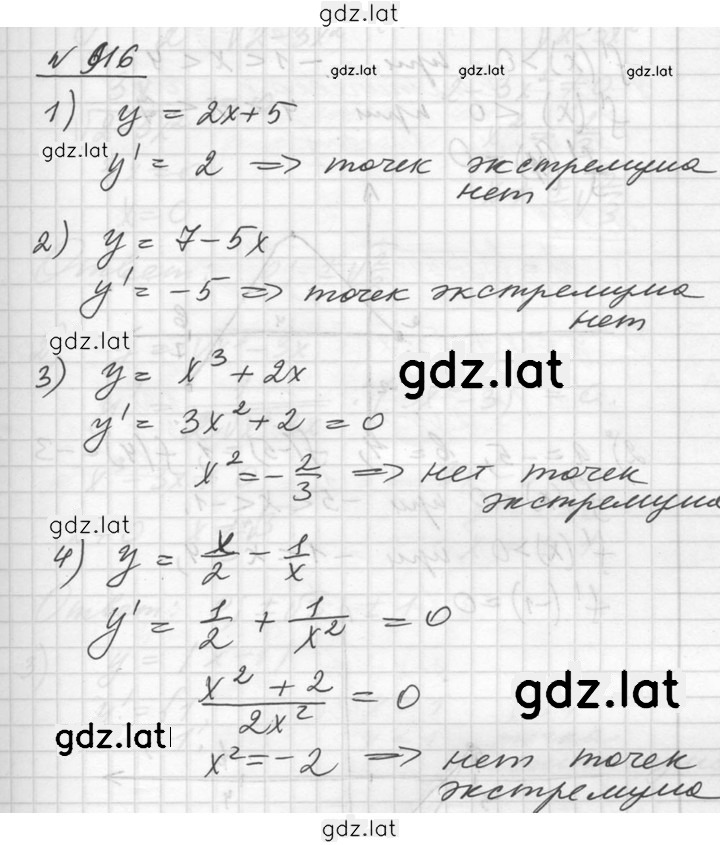 gdz.lat
N 916
gdz.lat gdz.lat gdz.lat
1) y = 2x+5
gdz.lat
y' = 2 => точек экстремума
нет
2) y = 7-5x
y' = -5 => точек экстремума
нет
gdz.lat
3) y = x³ + 2x
gdz.lat
y' = 3x² + 2 = 0
x² = -2/3 => нет точек
экстремума
gdz.lat
4) y = x/2 - 1/x
y' = 1/2 + 1/x² = 0
(x² + 2)/(2x²) = 0
gdz.lat
gdz.lat
x² = -2 => нет точек
экстремума
gdz.lat